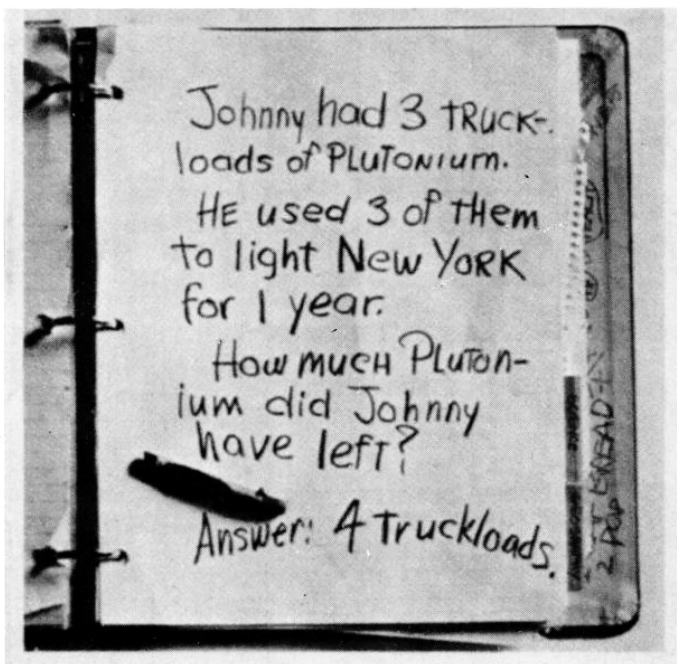 Johnny had 3 TRUCK-
loads of PLUTONIUM.
HE used 3 of THem
to light New YORK
for 1 year.
How mucH Pluton-
ium did Johnny
have left?
Answer: 4 Truckloads.
BREAD
2 POP